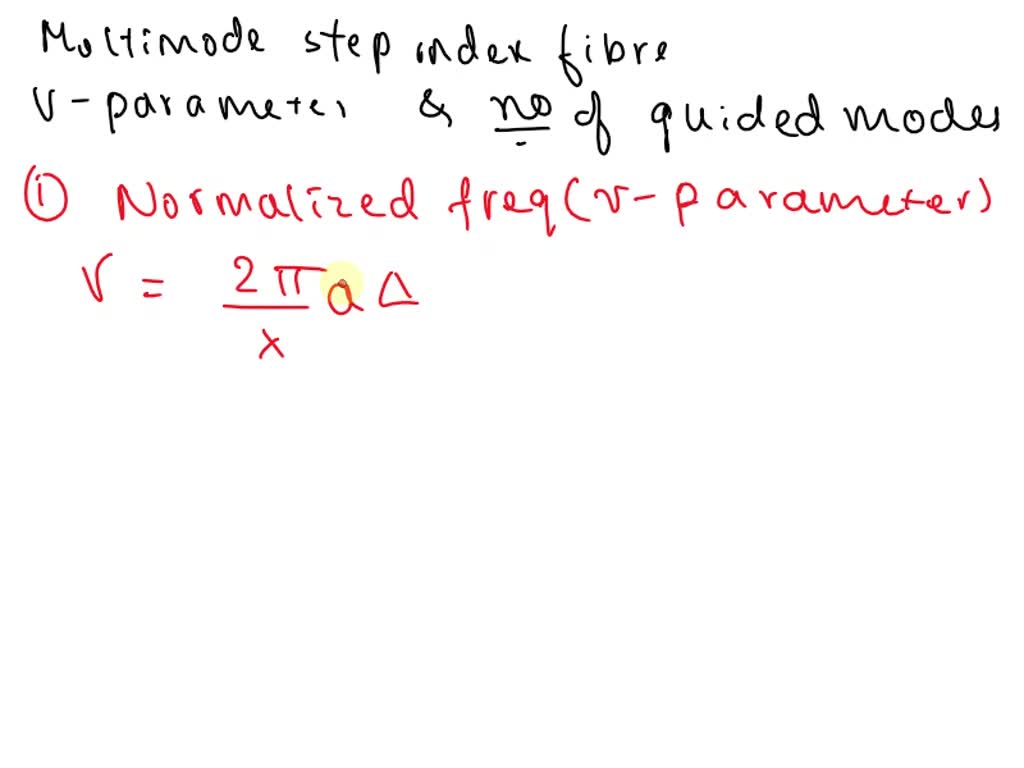 Multimode step index fibre
V-parameter & no of guided modes
① Normalized freq (v-parameter)
V = 2π/λ a Δ